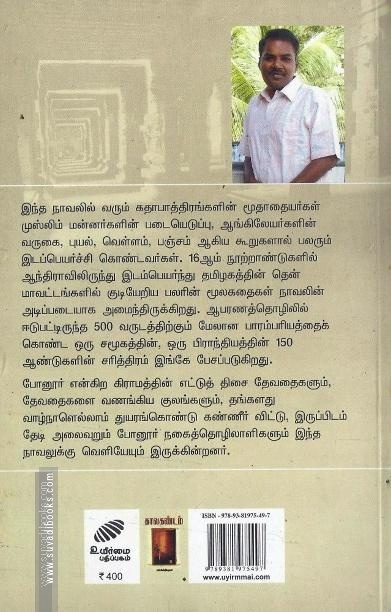 இந்த நாவலில் வரும் கதாபாத்திரங்களின் மூதாதையர்கள்
முஸ்லிம் மன்னர்களின் படையெடுப்பு, ஆங்கிலேயர்களின்
வருகை, புயல், வெள்ளம், பஞ்சம் ஆகிய கூறுகளால் பலரும்
இடப்பெயர்ச்சி கொண்டவர்கள். 16ஆம் நூற்றாண்டுகளில்
ஆந்திராவிலிருந்து இடம்பெயர்ந்து தமிழகத்தின் தென்
மாவட்டங்களில் குடியேறிய பலரின் மூலகதைகள் நாவலின்
அடிப்படையாக அமைந்திருக்கிறது. ஆபரணத்தொழிலில்
ஈடுபட்டிருந்த 500 வருடத்திற்கும் மேலான பாரம்பரியத்தைக்
கொண்ட ஒரு சமூகத்தின், ஒரு பிராந்தியத்தின் 150
ஆண்டுகளின் சரித்திரம் இங்கே பேசப்படுகிறது.
போனூர் என்கிற கிராமத்தின் எட்டுத் திசை தேவதைகளும்,
தேவதைகளை வணங்கிய குலங்களும், தங்களது
வாழ்நாளெல்லாம் துயரங்கொண்டு கண்ணீர் விட்டு, இருப்பிடம்
தேடி அலைவுறும் போனூர் நகைத்தொழிலாளிகளும் இந்த
நாவலுக்கு வெளியேயும் இருக்கின்றனர்.
www.suvadibooks.com
உயிர்மை
பதிப்பகம்
₹ 400
காலகண்டம்
ISBN - 978-93-81975-49-7
9789381975497
www.uyirmmai.com